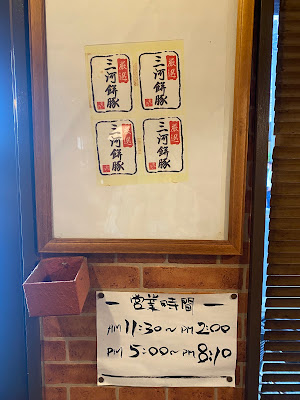 厳選
三河餅豚
厳選
三河餅豚
厳選
三河餅豚
厳選
三河餅豚
ー 営業時間 ー
AM 11:30〜PM 2:00
PM 5:00〜PM 8:10